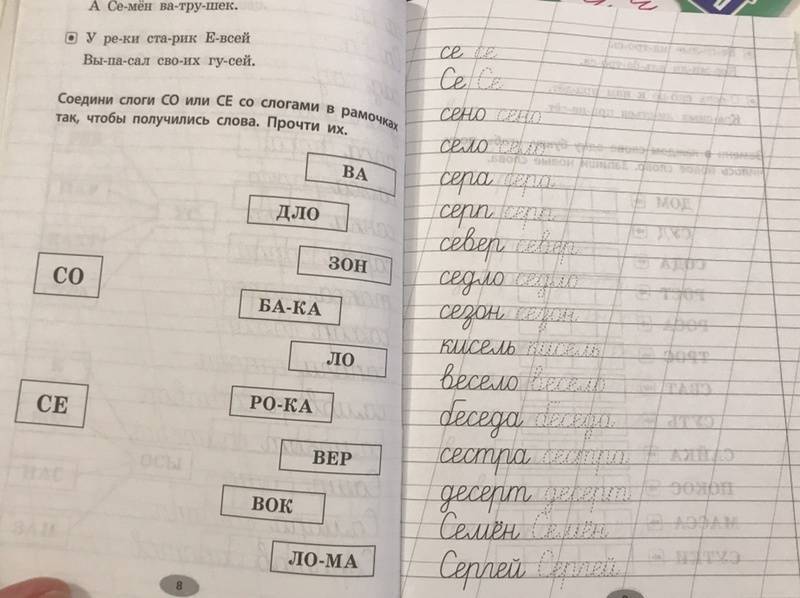 А Се-мён ва-тру-шек.
У ре-ки ста-рик Е-всей
Вы-па-сал сво-их гу-сей.
Соедини слоги СО или СЕ со слогами в рамочках
так, чтобы получились слова. Прочти их.
ВА
ДЛО
ЗОН
СО
БА-КА
ЛО
СЕ
РО-КА
ВЕР
ВОК
ЛО-МА
8
се се
Се Се
сено сено
село село
сера сера
серп серп
север север
седло седло
сезон сезон
кисель кисель
весело весело
беседа беседа
сестра сестра
десерт десерт
Семён Семён
Сергей Сергей